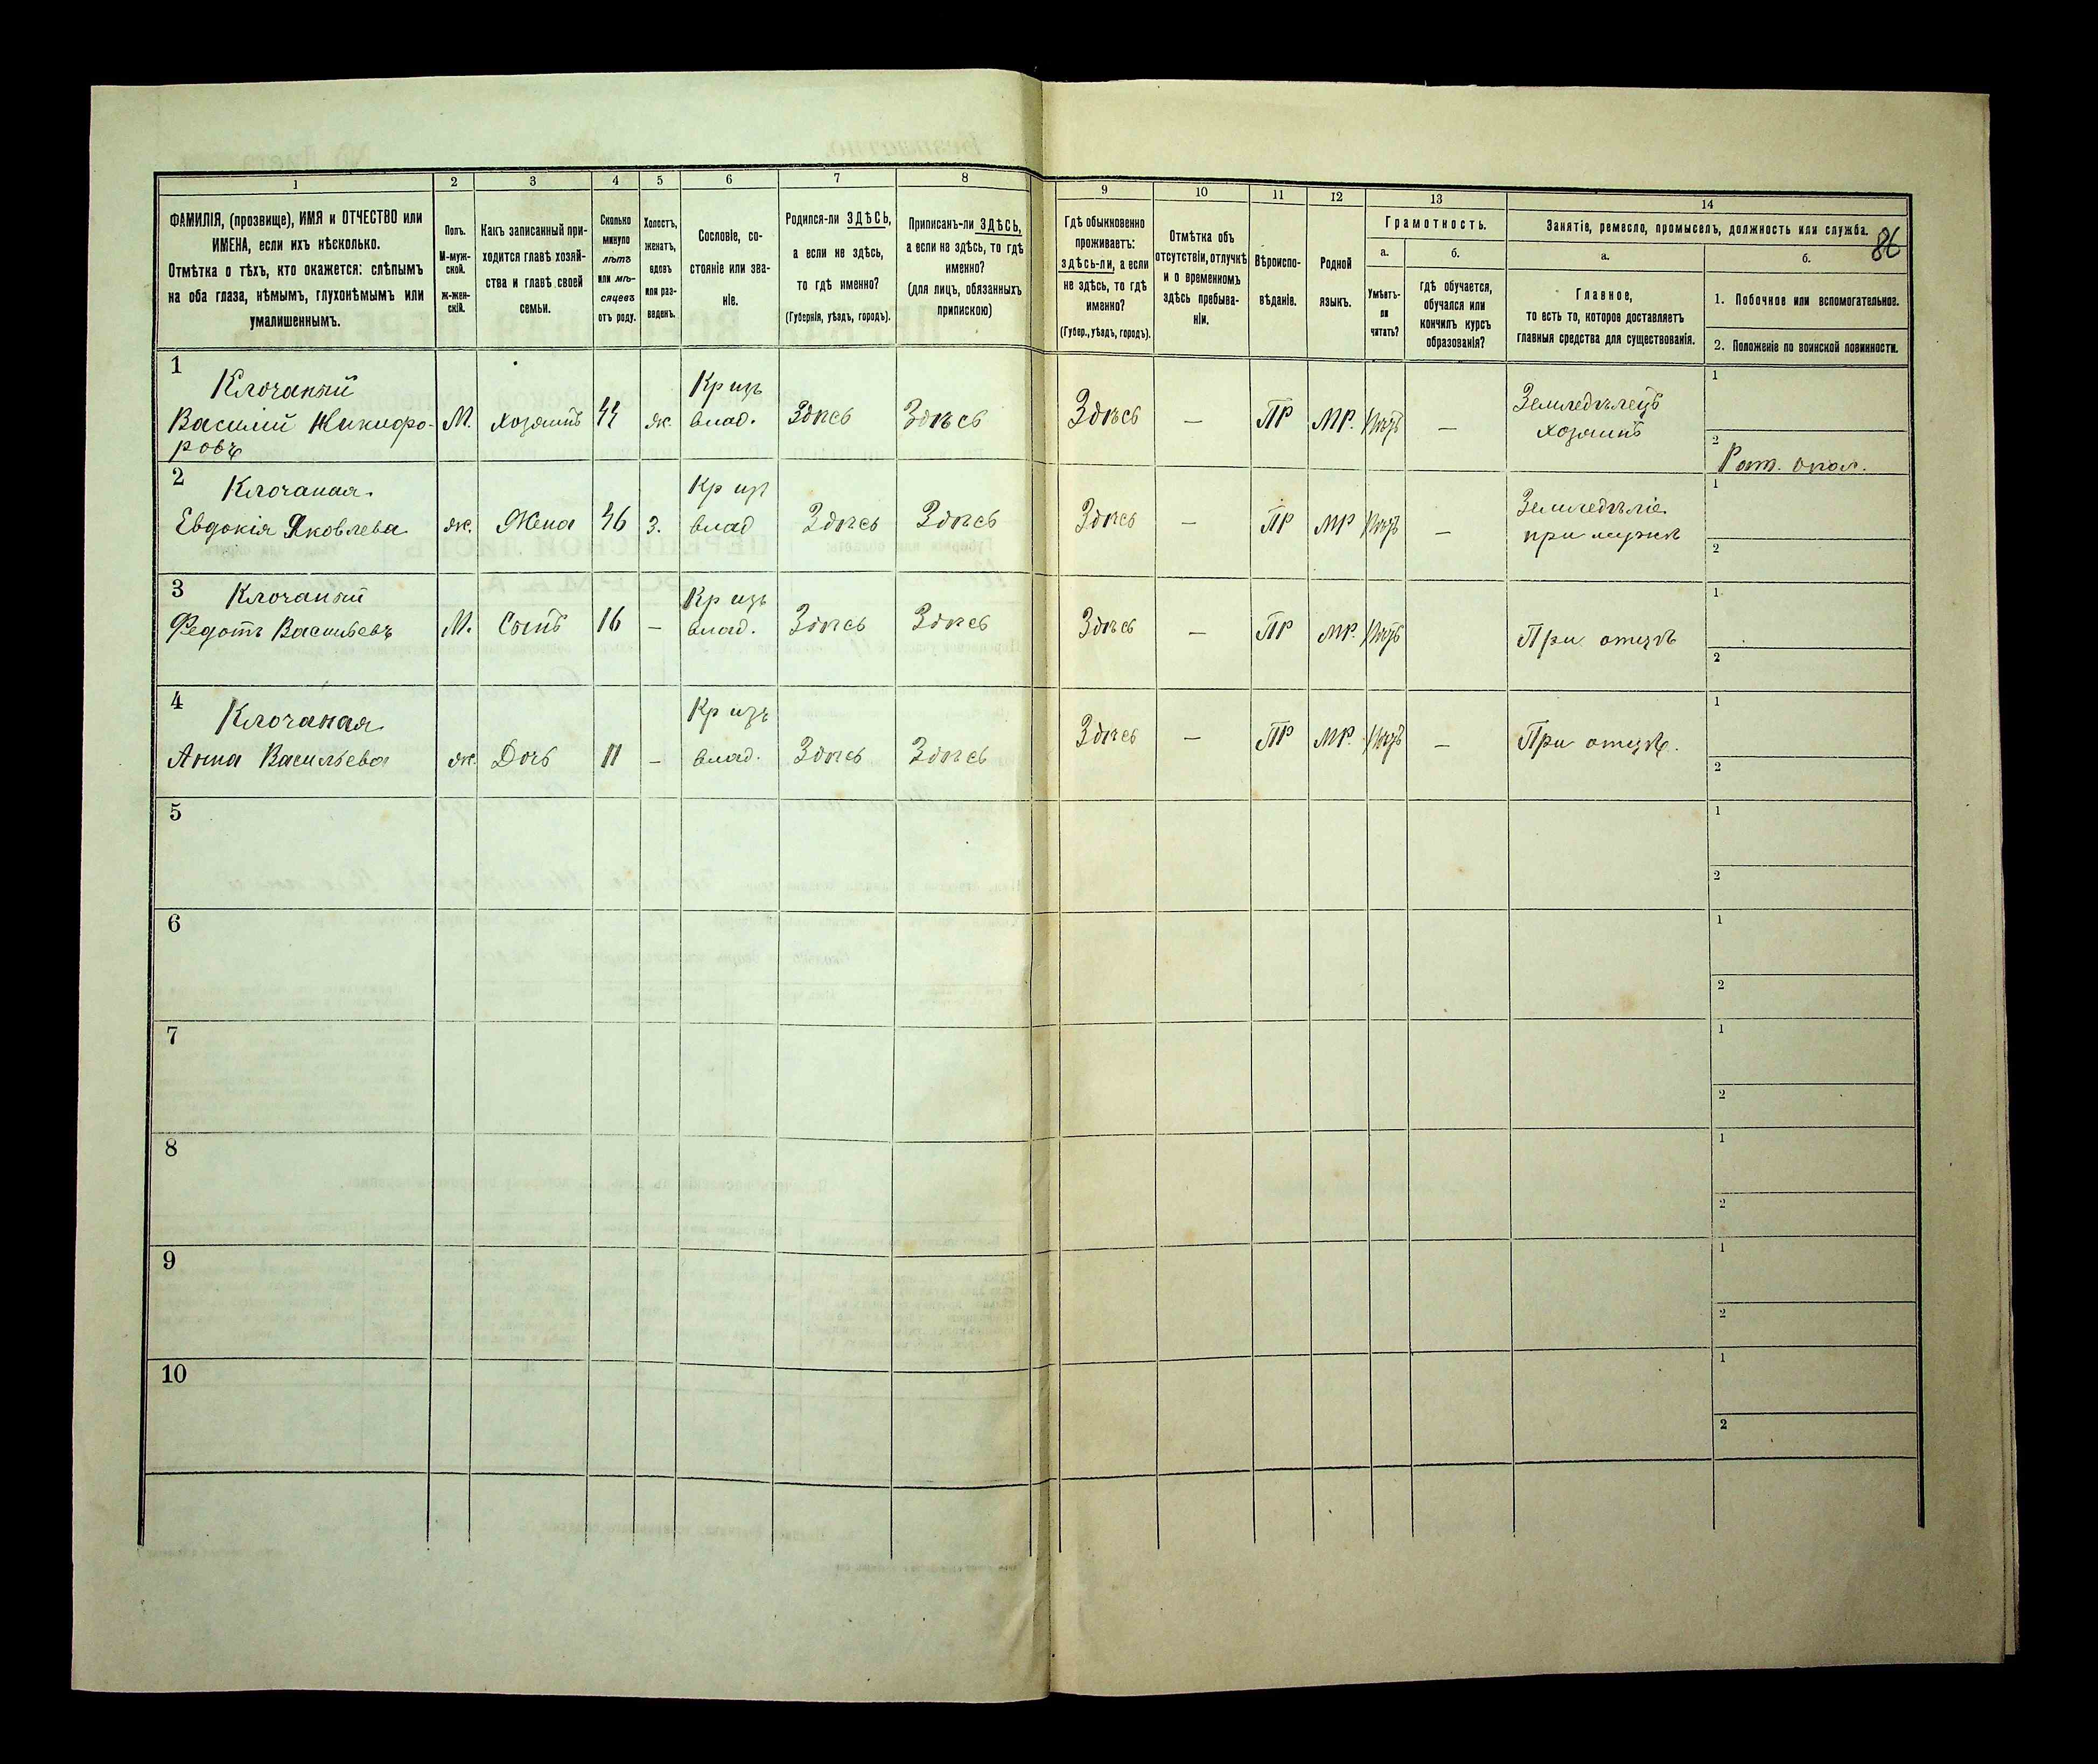 86
1 2 3 4 5 6 7 8 9 10 11 12 13 14
ФАМИЛІЯ, (прозвище), ИМЯ и ОТЧЕСТВО или
ИМЕНА, если ихъ нѣсколько.
Отмѣтка о тѣхъ, кто окажется: слѣпымъ
на оба глаза, нѣмымъ, глухонѣмымъ или
умалишеннымъ.
Полъ.
М-муж-
ской.
Ж-жен-
скій.
Какъ записанный при-
ходится главѣ хозяй-
ства и главѣ своей
семьи.
Сколько
минуло
лѣтъ
или мѣ-
сяцевъ
отъ роду.
Холостъ,
женатъ,
вдовъ
или раз-
веденъ.
Сословіе, со-
стояніе или зва-
ніе.
Родился-ли ЗДѢСЬ,
а если не здѣсь,
то гдѣ именно?
(Губернія, уѣздъ, городъ).
Приписанъ-ли ЗДѢСЬ,
а если не здѣсь, то гдѣ
именно?
(для лицъ, обязанныхъ
припискою)
Гдѣ обыкновенно
проживаетъ:
здѣсь-ли, а если
не здѣсь, то гдѣ
именно?
(Губер., уѣздъ, городъ).
Отмѣтка объ
отсутствіи, отлучкѣ
и о временномъ
здѣсь пребыва-
ніи.
Вѣроиспо-
вѣданіе.
Родной
языкъ.
Грамотность.
а.
Умѣетъ-
ли
читать?
б.
гдѣ обучается,
обучался или
кончилъ курсъ
образованія?
Занятіе, ремесло, промыселъ, должность или служба.
а.
Главное,
то есть то, которое доставляетъ
главныя средства для существованія.
б.
1. Побочное или вспомогательное.
2. Положеніе по воинской повинности.
1
Клочаный
Василій Никифо-
ровъ
М. хозяинъ 44 ж. Кр изъ
влад. Здѣсь Здѣсь Здѣсь — ПР МР. — Земледѣлецъ
хозяинъ
1
2
Рат. опол.
2
Клочаная
Евдокія Яковлева ж. Жена 46 З. Кр изъ
влад Здѣсь Здѣсь Здѣсь — ПР МР — Земледѣліе
при мужѣ
1
2
3
Клочаный
Федотъ Васильевъ М. Сынъ 16 — Кр изъ
влад. Здѣсь Здѣсь Здѣсь — ПР МР. При отцѣ
1
2
4
Клочаная
Анна Васильева ж. Дочь 11 — Кр изъ
влад. Здѣсь Здѣсь Здѣсь — ПР МР. — При отцѣ.
1
2
5
1
2
6
1
2
7
1
2
8
1
2
9
1
2
10
1
2